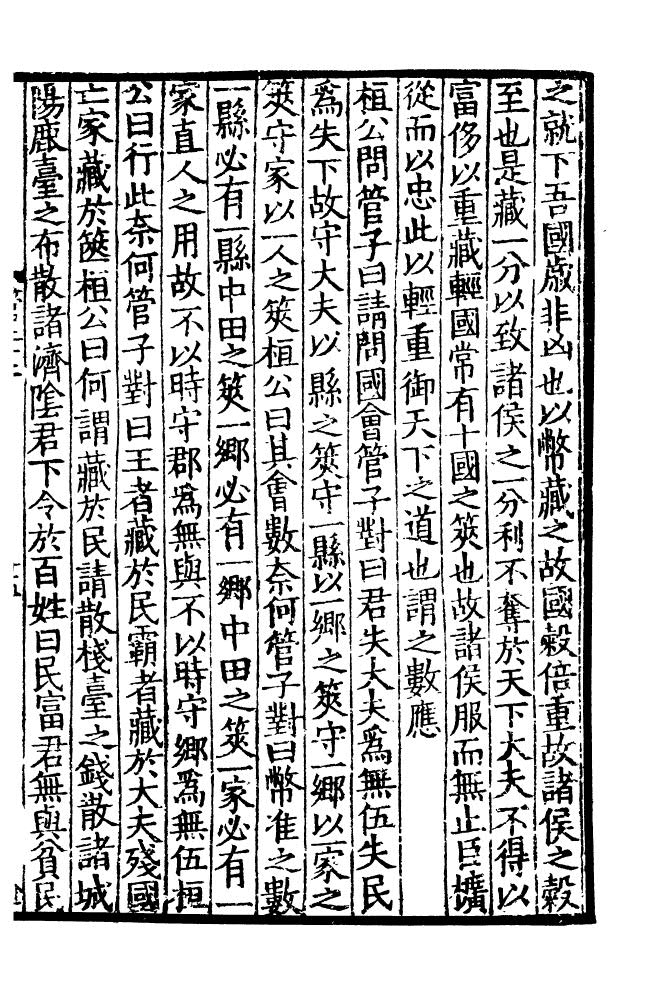 之就下吾國歳非凶也以幣藏之故國穀倍重故諸侯之穀
至也是藏一分以致諸侯之一分利不奪於天下大夫不得以
富侈以重藏輕國常有十國之筴也故諸侯服而無止臣擴
從而以忠此以輕重御天下之道也謂之數應
桓公問管子曰請問國會管子對曰君失大夫爲無伍失民
爲失下故守大夫以縣之筴守一縣以一鄉之筴守一鄉以一家之
筴守家以一人之筴桓公曰其會數奈何管子對曰幣准之數
一縣必有一縣中田之筴一鄉必有一鄉中田之筴一家必有一
家直人之用故不以時守郡爲無與不以時守鄉爲無伍桓
公曰行此奈何管子對曰王者藏於民霸者藏於大夫殘國
亡家藏於篋桓公曰何謂藏於民請散棧臺之錢散諸城
陽鹿臺之布散諸濟陰君下令於百姓曰民富君無與貧民